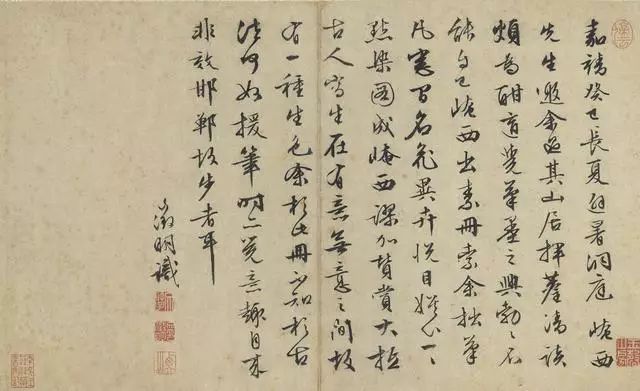 嘉靖癸巳長夏避暑洞庭崦西
先生邀余過其山居揮麈清談
頗為酣適覺筆墨之興勃勃不
能自已崦西出素冊索余拙筆
凡窗間名花異卉悅目娛心一一
點染圖成崦西謬加贊賞大抵
古人寫生在有意無意之間故
有一種生色余於此冊不知於古
法何如援筆時亦覺意趣自來
非效邯鄲故步者耳
徵明識